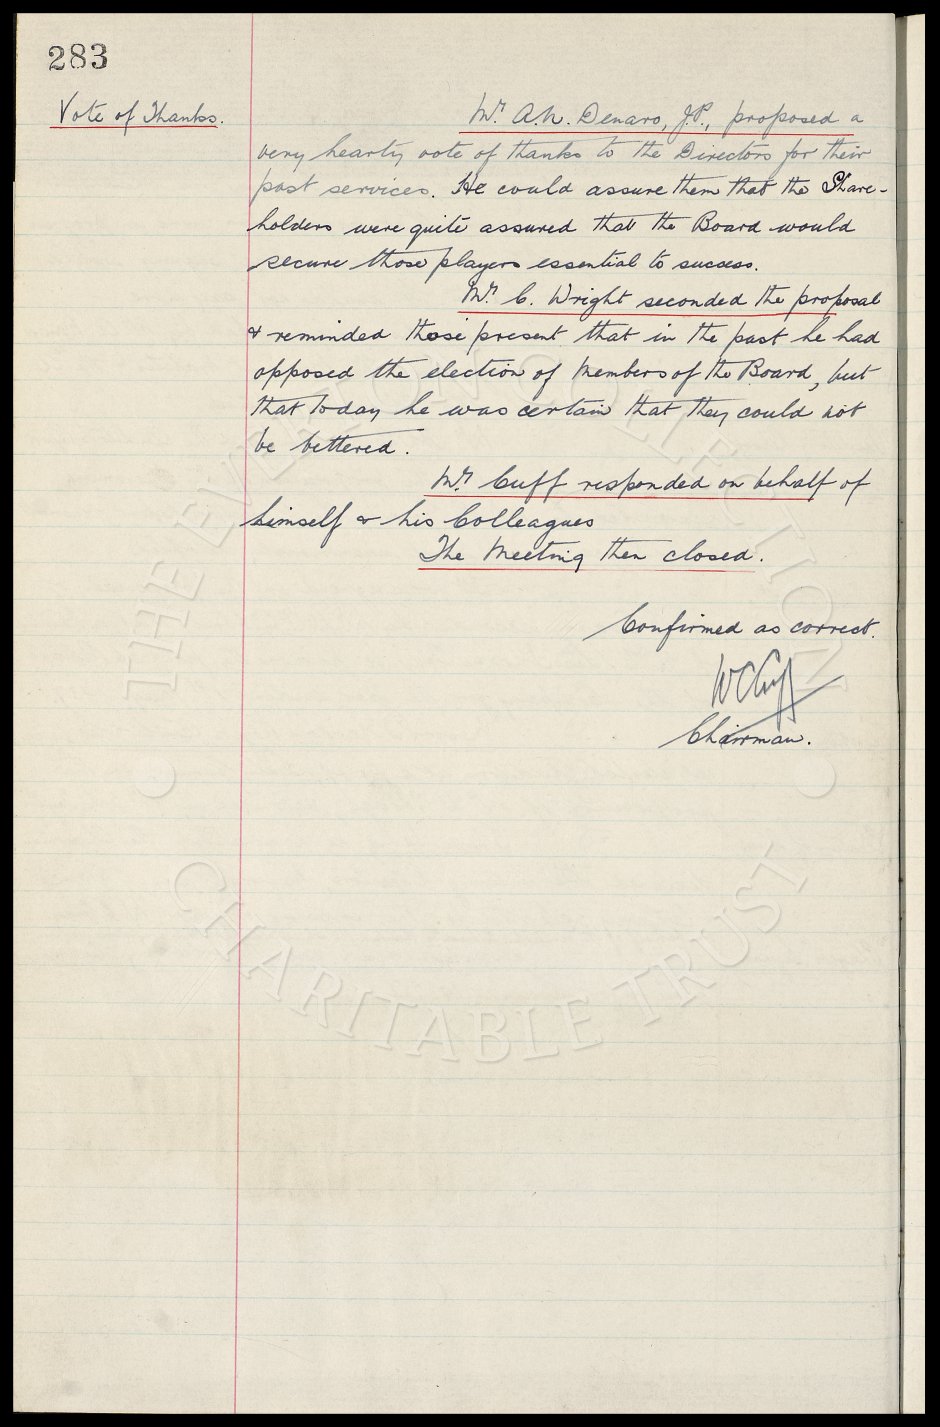 283
Vote of Thanks.
Mr. A.N. Denaro, J.P., proposed a
very hearty vote of thanks to the Directors for their
past services. He could assure them that the Share-
holders were quite assured that the Board would
secure those players essential to success.
Mr. C. Wright seconded the proposal
& reminded those present that in the past he had
opposed the election of Members of the Board, but
that today he was certain that they could not
be bettered.
Mr. Cuff responded on behalf of
himself & his Colleagues
The Meeting then closed.
Confirmed as correct.
WCCuff
Chairman.
THE EVERTON COLLECTION
CHARITABLE TRUST